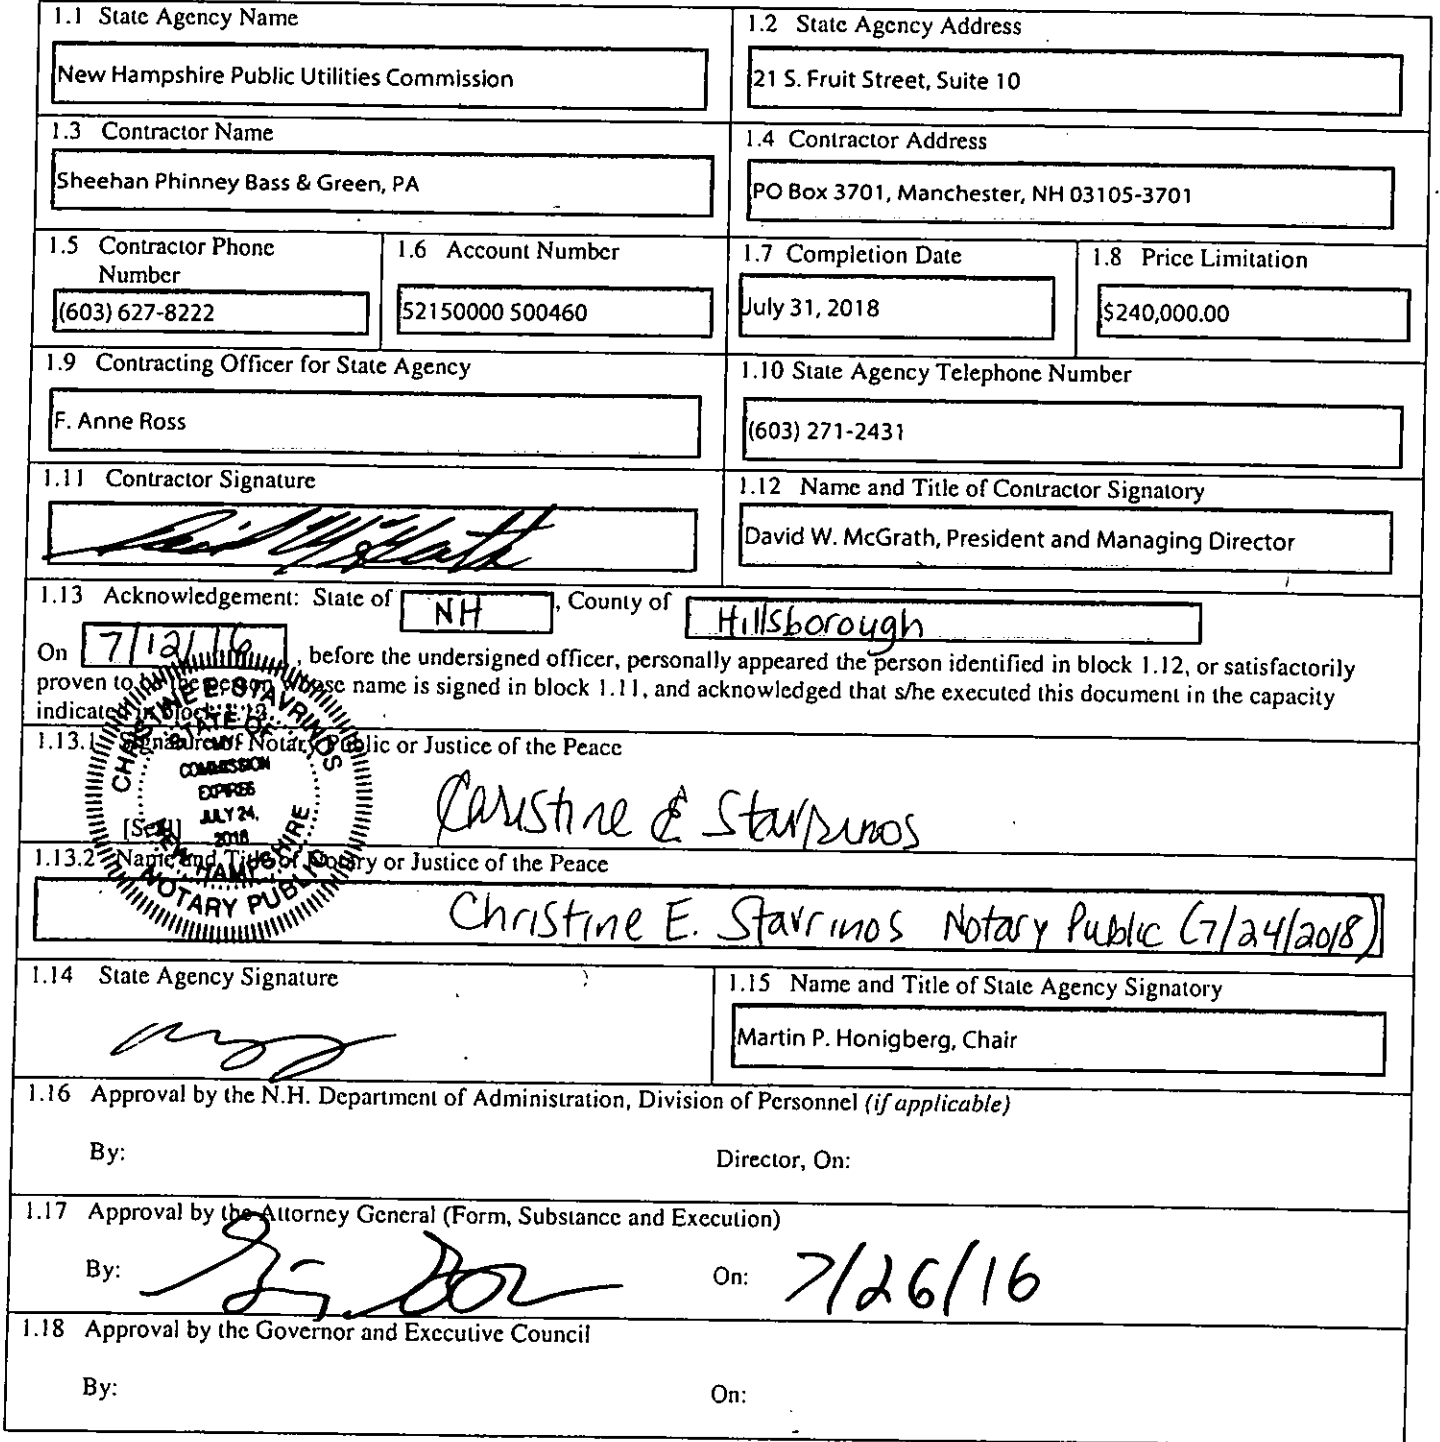 1.1 State Agency Name
New Hampshire Public Utilities Commission
1.2 State Agency Address
21 S. Fruit Street, Suite 10
1.3 Contractor Name
Sheehan Phinney Bass & Green, PA
1.4 Contractor Address
PO Box 3701, Manchester, NH 03105-3701
1.5 Contractor Phone
Number
(603) 627-8222
1.6 Account Number
52150000 500460
1.7 Completion Date
July 31, 2018
1.8 Price Limitation
$240,000.00
1.9 Contracting Officer for State Agency
F. Anne Ross
1.10 State Agency Telephone Number
(603) 271-2431
1.11 Contractor Signature
1.12 Name and Title of Contractor Signatory
David W. McGrath, President and Managing Director
1.13 Acknowledgement: State of NH, County of Hillsborough
On 7/12/16, before the undersigned officer, personally appeared the person identified in block 1.12, or satisfactorily
proven to be the person whose name is signed in block 1.11, and acknowledged that s/he executed this document in the capacity
indicated in block 1.12.
1.13.1 Signature of Notary Public or Justice of the Peace
CHRISTINE E. STAVRINOS
STATE OF
MY
COMMISSION
EXPIRES
JULY 24,
2018
NEW HAMPSHIRE
NOTARY PUBLIC
[Seal]
Christine E Stavrinos
1.13.2 Name and Title of Notary or Justice of the Peace
Christine E. Stavrinos Notary Public (7/24/2018)
1.14 State Agency Signature
1.15 Name and Title of State Agency Signatory
Martin P. Honigberg, Chair
1.16 Approval by the N.H. Department of Administration, Division of Personnel (if applicable)
By: Director, On:
1.17 Approval by the Attorney General (Form, Substance and Execution)
By: On: 7/26/16
1.18 Approval by the Governor and Executive Council
By: On: